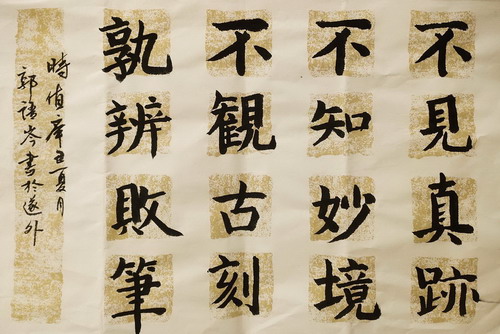 不見真跡
不知妙境
不觀古刻
孰辨敗筆
時值辛丑夏月
郭語岑書於遂外